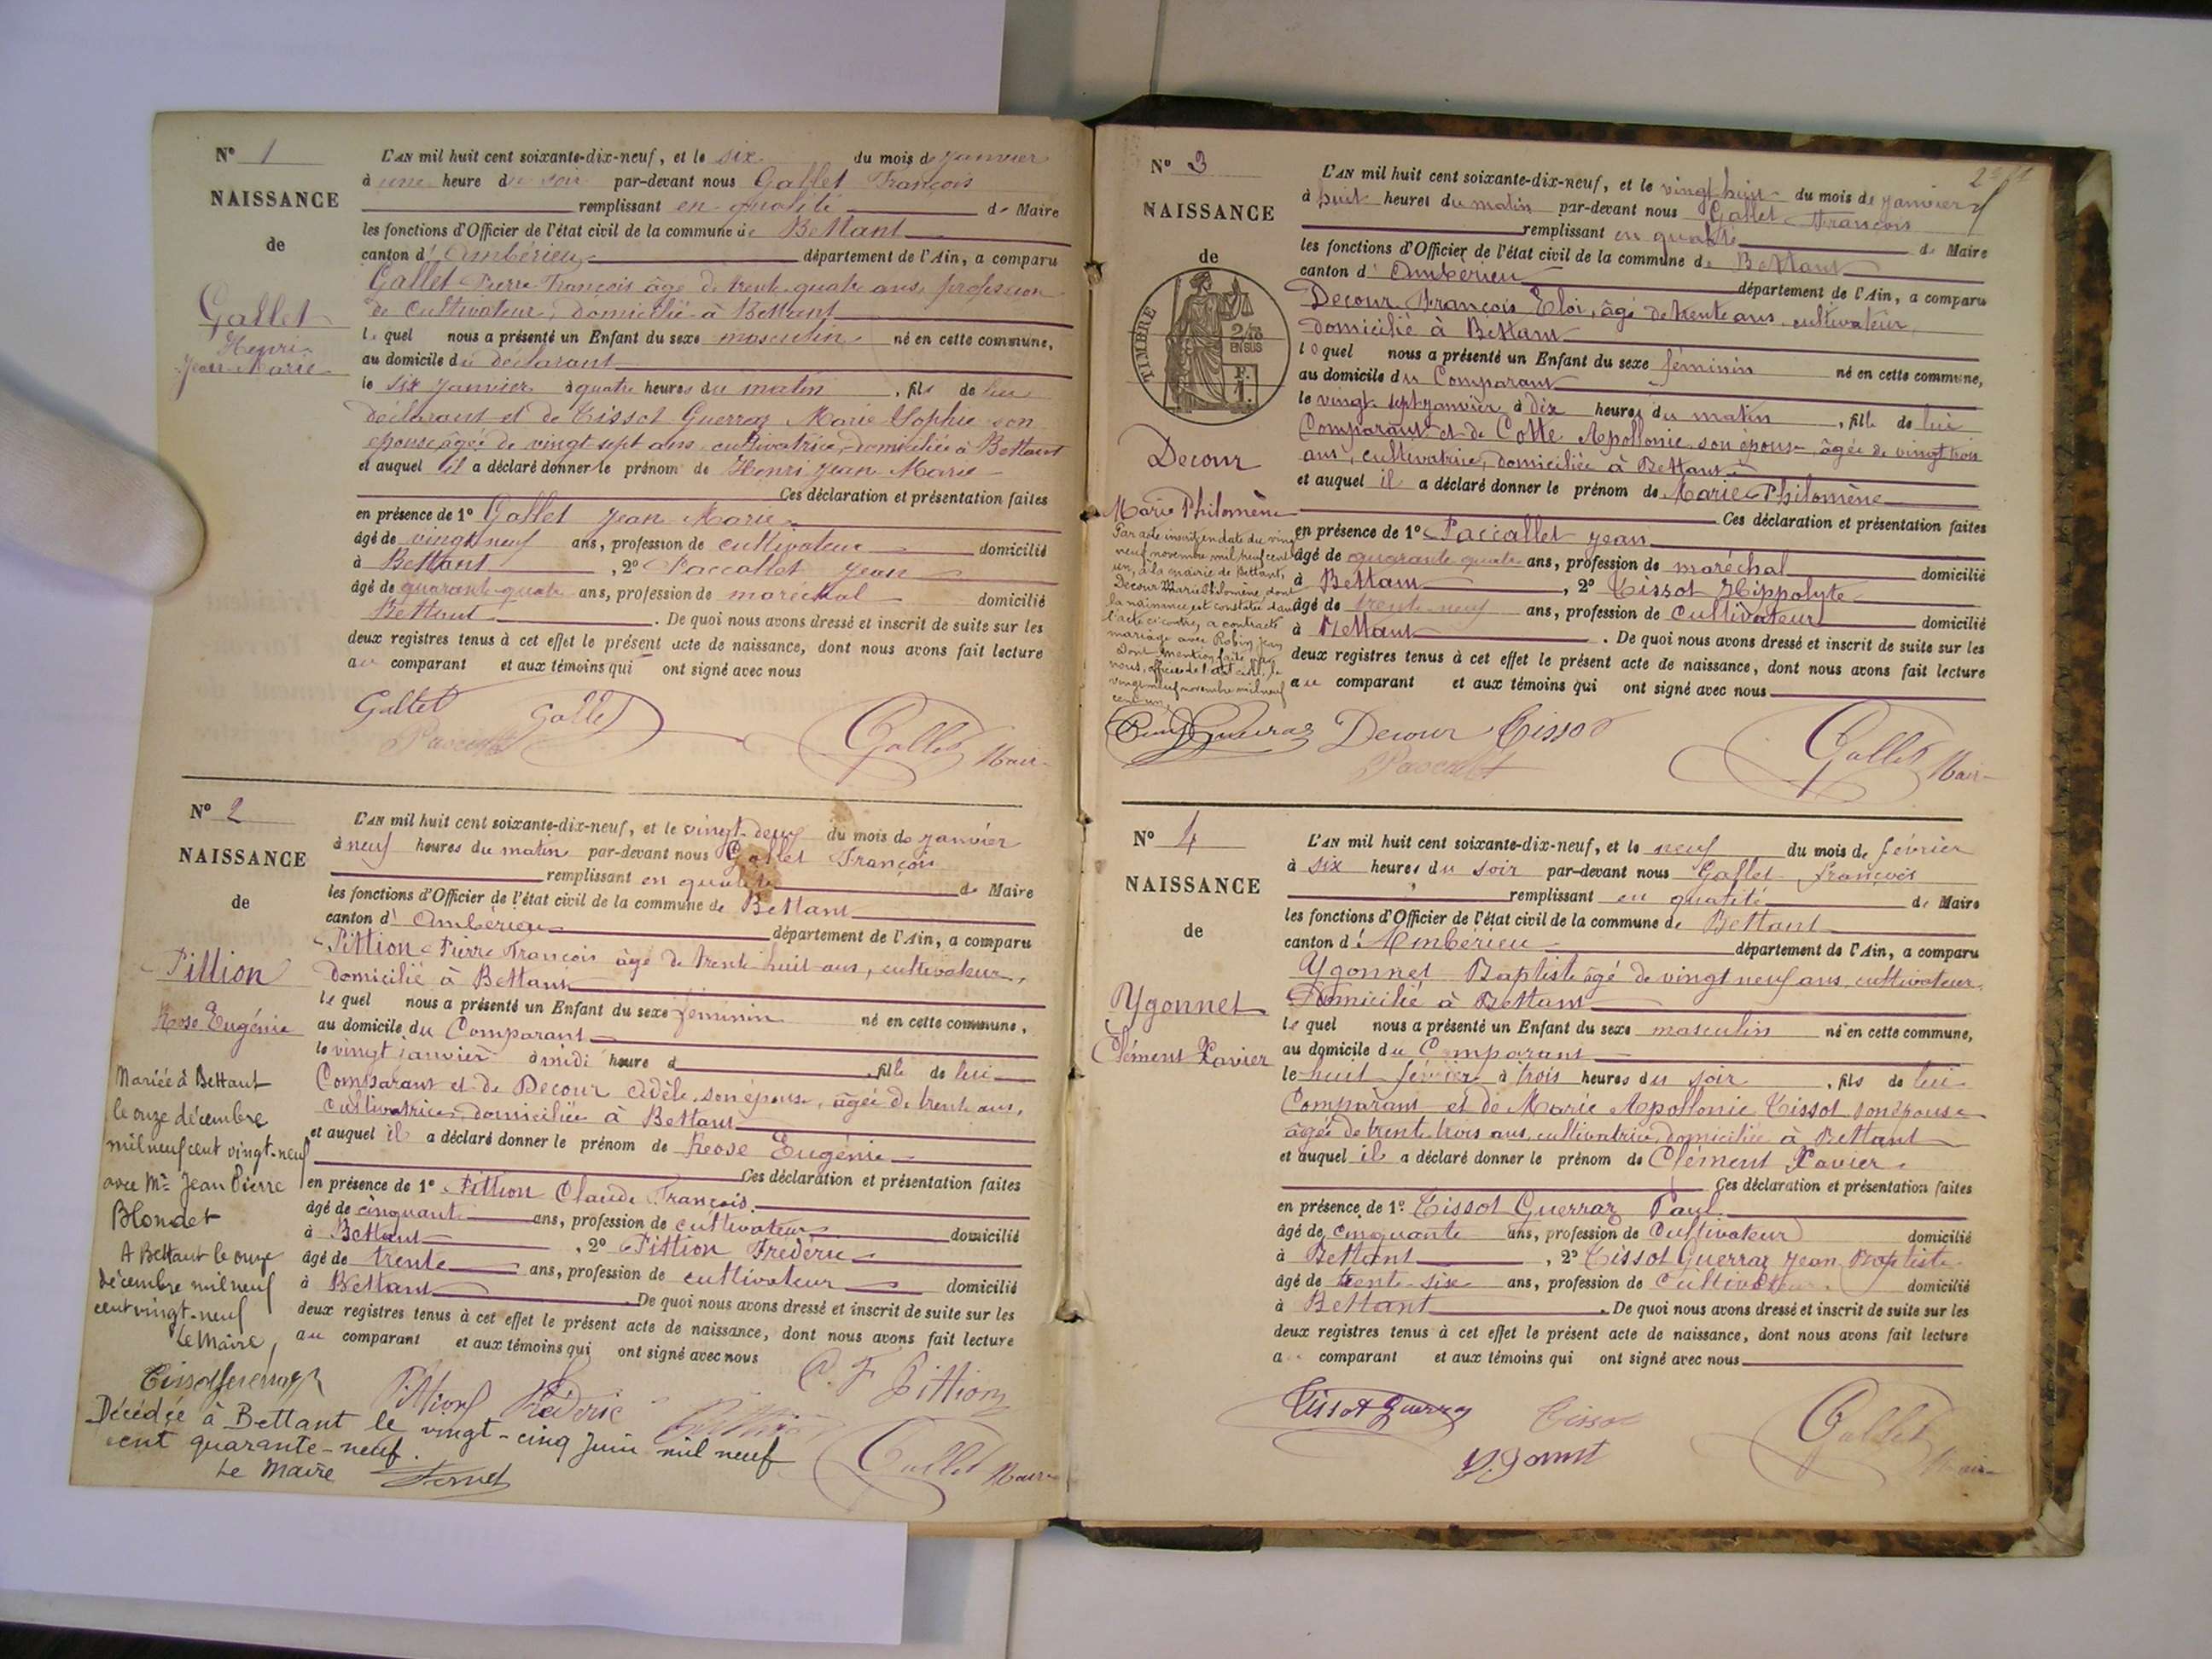 N° 1
NAISSANCE
de
Gallet
Henri
Jean Marie
L'AN mil huit cent soixante-dix-neuf, et le six du mois de janvier
à une heure du soir par-devant nous Gallet François
remplissant en qualité de Maire
les fonctions d'Officier de l'état civil de la commune de Bettant
canton d'Ambérieu département de l'Ain, a comparu
Gallet Pierre François âgé de trente quatre ans, profession
de Cultivateur, domicilié à Bettant
lequel nous a présenté un Enfant du sexe masculin né en cette commune,
au domicile du déclarant
le six janvier à quatre heures du matin, fils de lui
déclarant et de Tissot Guerraz Marie Sophie son
épouse, âgée de vingt sept ans cultivatrice, domiciliée à Bettant
et auquel il a déclaré donner le prénom de Henri Jean Marie
Ces déclaration et présentation faites
en présence de 1° Gallet Jean Marie
âgé de vingt neuf ans, profession de cultivateur domicilié
à Bettant, 2° Paccallet Jean
âgé de quarante quatre ans, profession de maréchal domicilié
Bettant. De quoi nous avons dressé et inscrit de suite sur les
deux registres tenus à cet effet le présent acte de naissance, dont nous avons fait lecture
au comparant et aux témoins qui ont signé avec nous
Gallet Gallet
Gallet Maire
N° 2
NAISSANCE
de
Pittion
Rose Eugénie
Mariée à Bettant
le onze décembre
mil neuf cent vingt-neuf
avec Mr Jean Pierre
Blondet
A Bettant le onze
décembre mil neuf
cent vingt-neuf
Le Maire,
L'AN mil huit cent soixante-dix-neuf, et le vingt-deux du mois de janvier
à neuf heures du matin par-devant nous Gallet François
remplissant en qualité de Maire
les fonctions d'Officier de l'état civil de la commune de Bettant
canton d'Ambérieu département de l'Ain, a comparu
Pittion Pierre François âgé de trente huit ans, cultivateur,
domicilié à Bettant
lequel nous a présenté un Enfant du sexe féminin né en cette commune,
au domicile du Comparant
le vingt janvier à midi heure d, fille de lui
Comparant et de Decour Adèle, son épouse, âgée de trente ans,
cultivatrice, domiciliée à Bettant
et auquel il a déclaré donner le prénom de Rose Eugénie
Ces déclaration et présentation faites
en présence de 1° Pittion Claude François
âgé de cinquante ans, profession de cultivateur domicilié
à Bettant, 2° Pittion Frédéric
âgé de trente ans, profession de cultivateur domicilié
à Bettant. De quoi nous avons dressé et inscrit de suite sur les
deux registres tenus à cet effet le présent acte de naissance, dont nous avons fait lecture
au comparant et aux témoins qui ont signé avec nous
C. F. Pittion
Pittion Frédéric
Décédée à Bettant le vingt-cinq Juin mil neuf
cent quarante-neuf.
Le Maire
Gallet Maire
N° 3
NAISSANCE
de
TIMBRE
EN SUS
Decour
Marie Philomène
Par acte inscrit en date du vingt
neuf novembre mil neuf cent
un, à la mairie de Bettant,
Decour Marie Philomène, dont
la naissance est constatée dans
l'acte ci contre, a contracté
mariage avec Robin Jean
Dont mention faite par
nous, officier de l'état civil, le
vingt neuf novembre mil neuf
cent un,
L'AN mil huit cent soixante-dix-neuf, et le vingt-huit du mois de janvier
à huit heures du matin par-devant nous Gallet François
remplissant en qualité de Maire
les fonctions d'Officier de l'état civil de la commune de Bettant
canton d'Ambérieu département de l'Ain, a comparu
Decour François Eloi, âgé de trente ans, cultivateur,
domicilié à Bettant
lequel nous a présenté un Enfant du sexe féminin né en cette commune,
au domicile du Comparant
le vingt sept janvier à dix heures du matin, fille de lui
Comparant et de Cotte Apollonie son épouse, âgée de vingt trois
ans, cultivatrice, domiciliée à Bettant
et auquel il a déclaré donner le prénom de Marie Philomène
Ces déclaration et présentation faites
en présence de 1° Paccallet Jean
âgé de quarante quatre ans, profession de maréchal domicilié
à Bettant, 2° Tissot Hippolyte
âgé de trente neuf ans, profession de Cultivateur domicilié
à Bettant. De quoi nous avons dressé et inscrit de suite sur les
deux registres tenus à cet effet le présent acte de naissance, dont nous avons fait lecture
au comparant et aux témoins qui ont signé avec nous
Decour Tissot
Gallet Maire
N° 4
NAISSANCE
de
Ygonnet
Clément Xavier
L'AN mil huit cent soixante-dix-neuf, et le neuf du mois de février
à six heures du soir par-devant nous Gallet François
remplissant en qualité de Maire
les fonctions d'Officier de l'état civil de la commune de Bettant
canton d'Ambérieu département de l'Ain, a comparu
Ygonnet Baptiste âgé de vingt neuf ans, cultivateur,
Domicilié à Bettant
lequel nous a présenté un Enfant du sexe masculin né en cette commune,
au domicile du Comparant
le huit février à trois heures du soir, fils de lui
Comparant et de Marie Apollonie Tissot son épouse
âgée de trente trois ans, cultivatrice, domiciliée à Bettant
et auquel il a déclaré donner le prénom de Clément Xavier
Ces déclaration et présentation faites
en présence de 1° Tissot Guerraz Paul
âgé de cinquante ans, profession de Cultivateur domicilié
à Bettant, 2° Tissot Guerraz Jean Baptiste
âgé de trente six ans, profession de Cultivateur domicilié
à Bettant. De quoi nous avons dressé et inscrit de suite sur les
deux registres tenus à cet effet le présent acte de naissance, dont nous avons fait lecture
a comparant et aux témoins qui ont signé avec nous
Tissot Guerraz Tissot
Gallet Maire